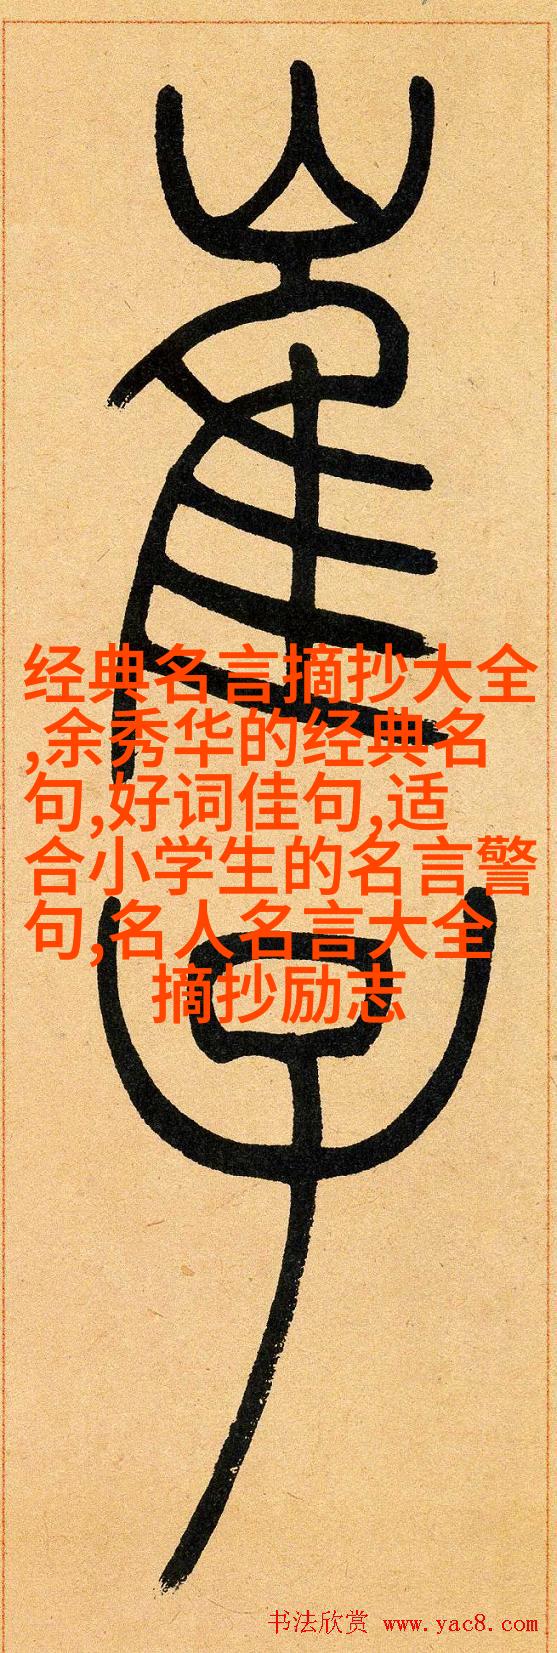 崔子
经典名言摘抄大全
,余秀华的经典名
句,好词佳句,适
合小学生的名言警
句,名人名言大全
摘抄励志
书法欣赏 www.yac8.com